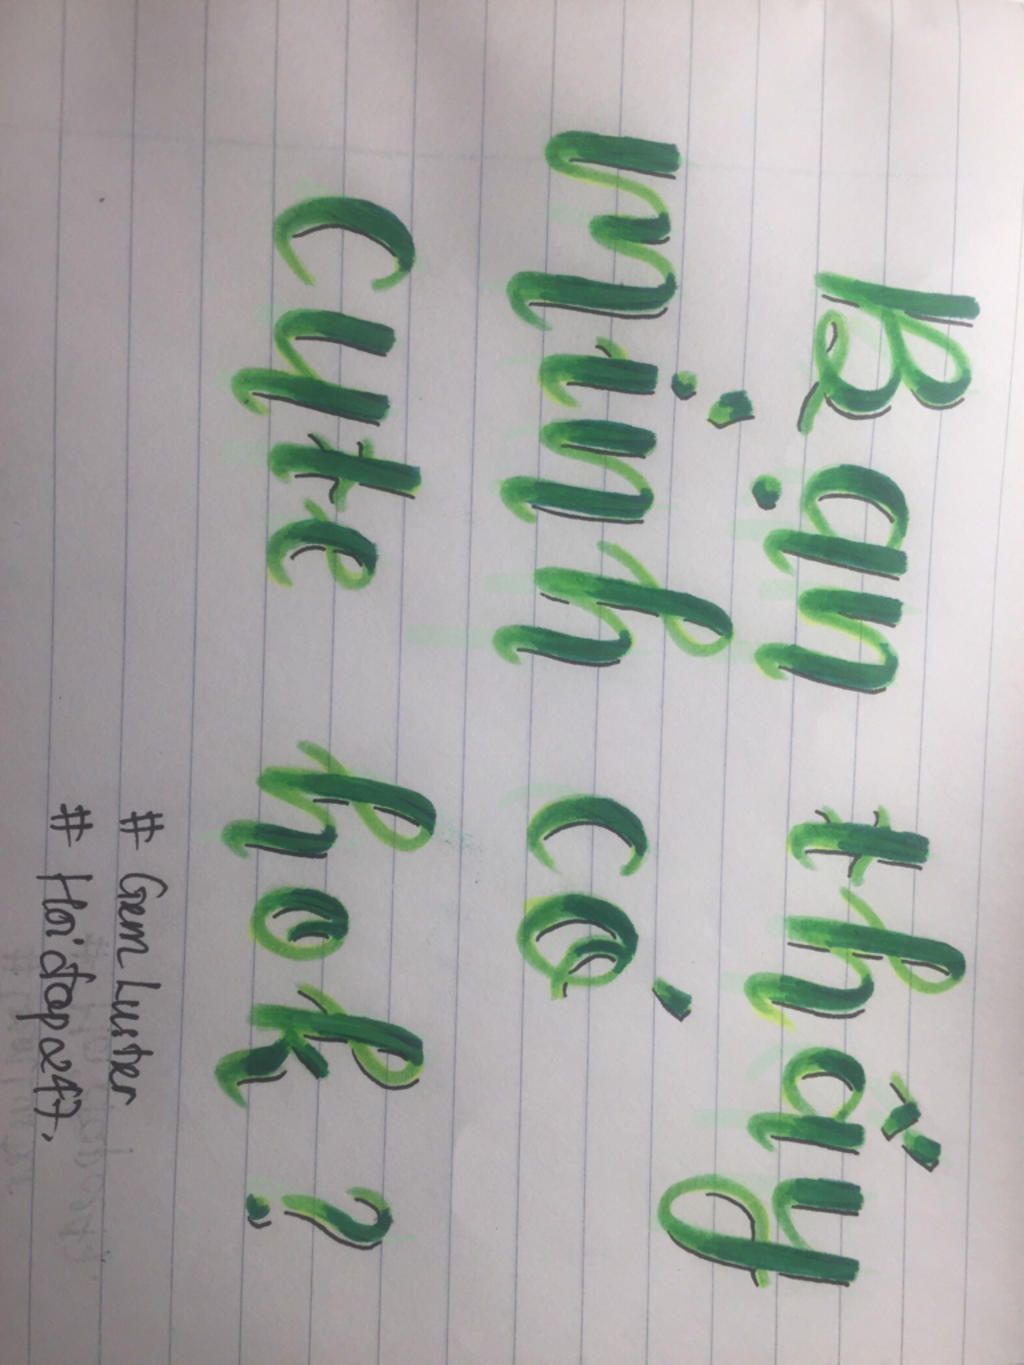 Bạn thấy
mình có
cute hok ?
# Gem Luster
# Hoidap247.